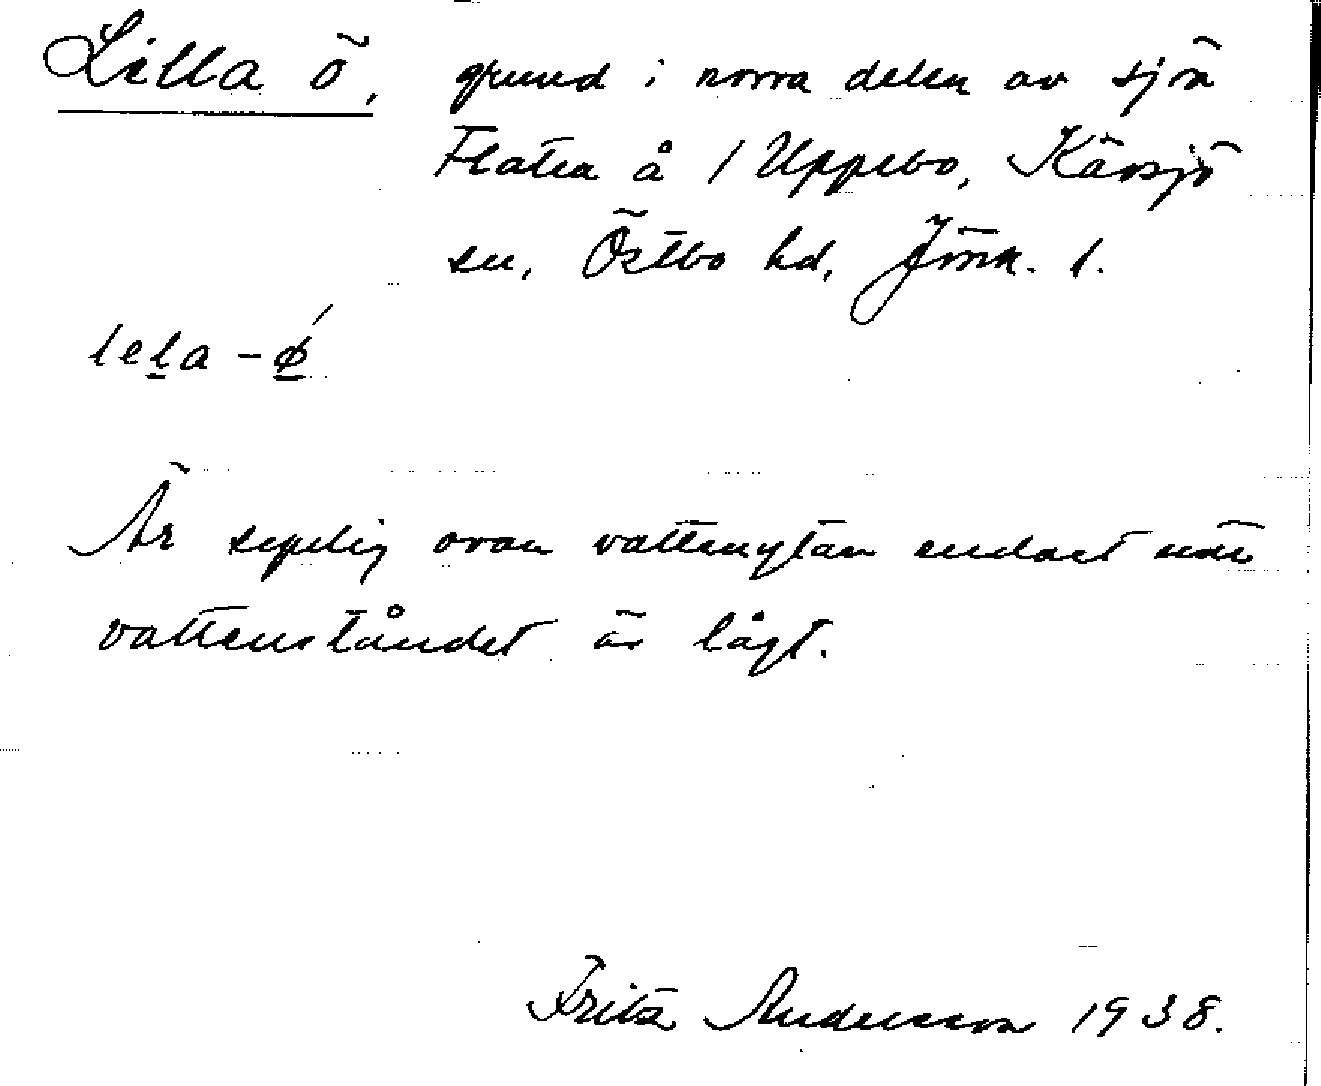 Lilla ö, grund i norra delen av sjön
Flaten å 1 Uppebo, Kävsjö
sn, Östbo hd, Jönk. l.
lela - ǿ
Är synlig ovan vattenytan endast när
vattenståndet är lågt.
Fritz Andersson 1938.